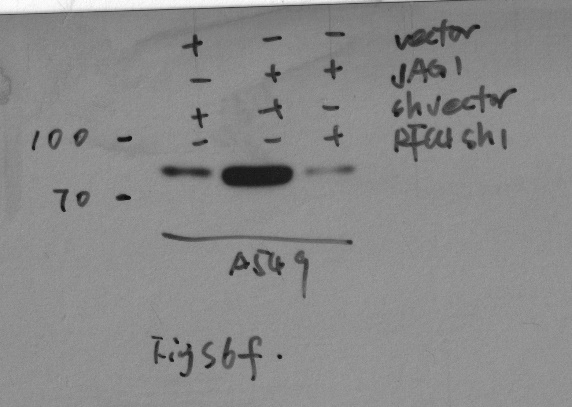 + - - vector
- + + JAG1
+ + - shvector
100 - - - + RFC4 sh1
70 -
A549
Fig S6f.